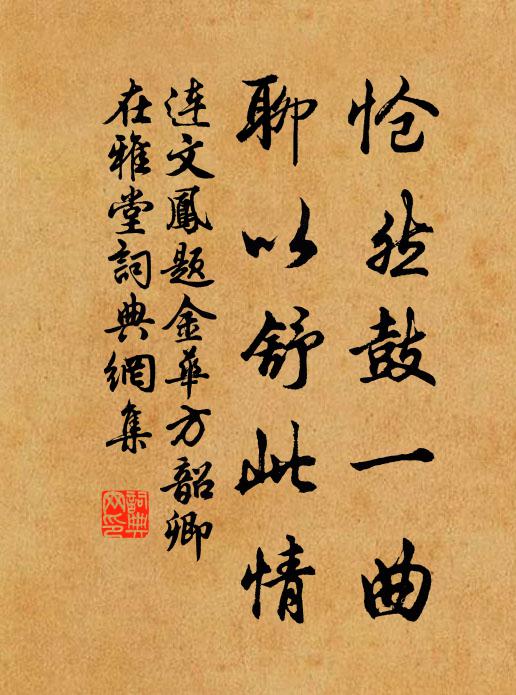 怆然鼓一曲
聊以舒此情
連文鳳題金華方韶卿
在雅堂詞典網集
詞典網印